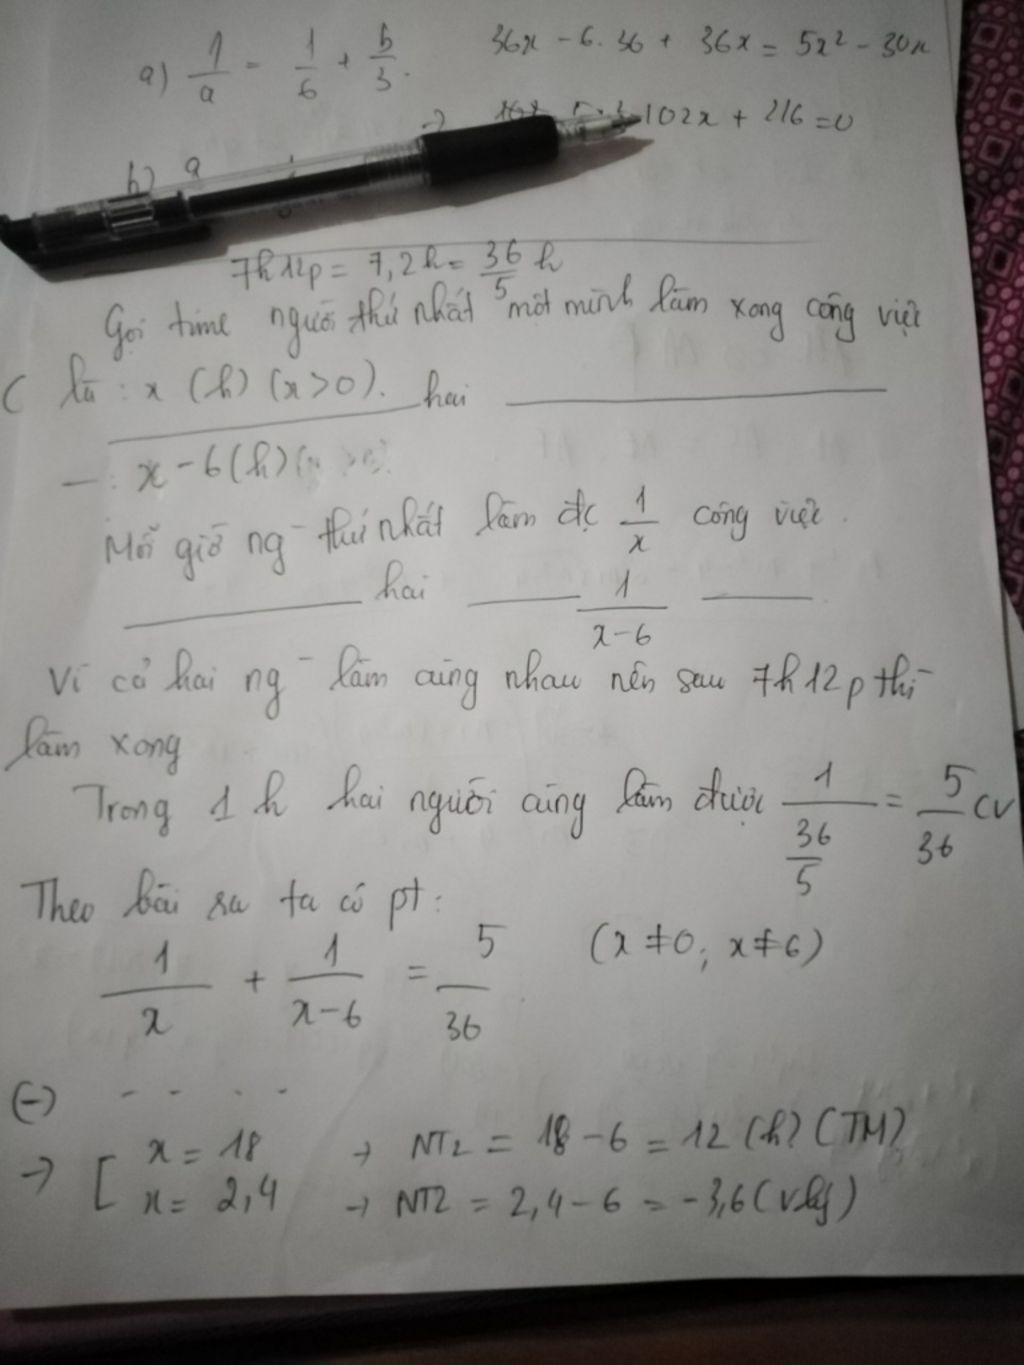 a) 1/a = 1/6 + b/3.
36x - 6.36 + 36x = 5x² - 30x
102x + 216 = 0
b) a
7h12p = 7,2h = 36/5 h
Gọi time người thứ nhất một mình làm xong công việc
là : x (h) (x>0). hai
— : x - 6 (h)
Mỗi giờ ng - thứ nhất làm đc 1/x công việc.
hai 1/(x-6)
Vì cả hai ng - làm cùng nhau nên sau 7h12p thì
làm xong
Trong 1h hai người cùng làm được 1/(36/5) = 5/36 CV
Theo bài ra ta có pt:
1/x + 1/(x-6) = 5/36 (x ≠ 0; x ≠ 6)
(-) - - - -
→ [ x = 18 → NT2 = 18 - 6 = 12 (h) (TM)
x = 2,4 → NT2 = 2,4 - 6 = -3,6 (vlý)